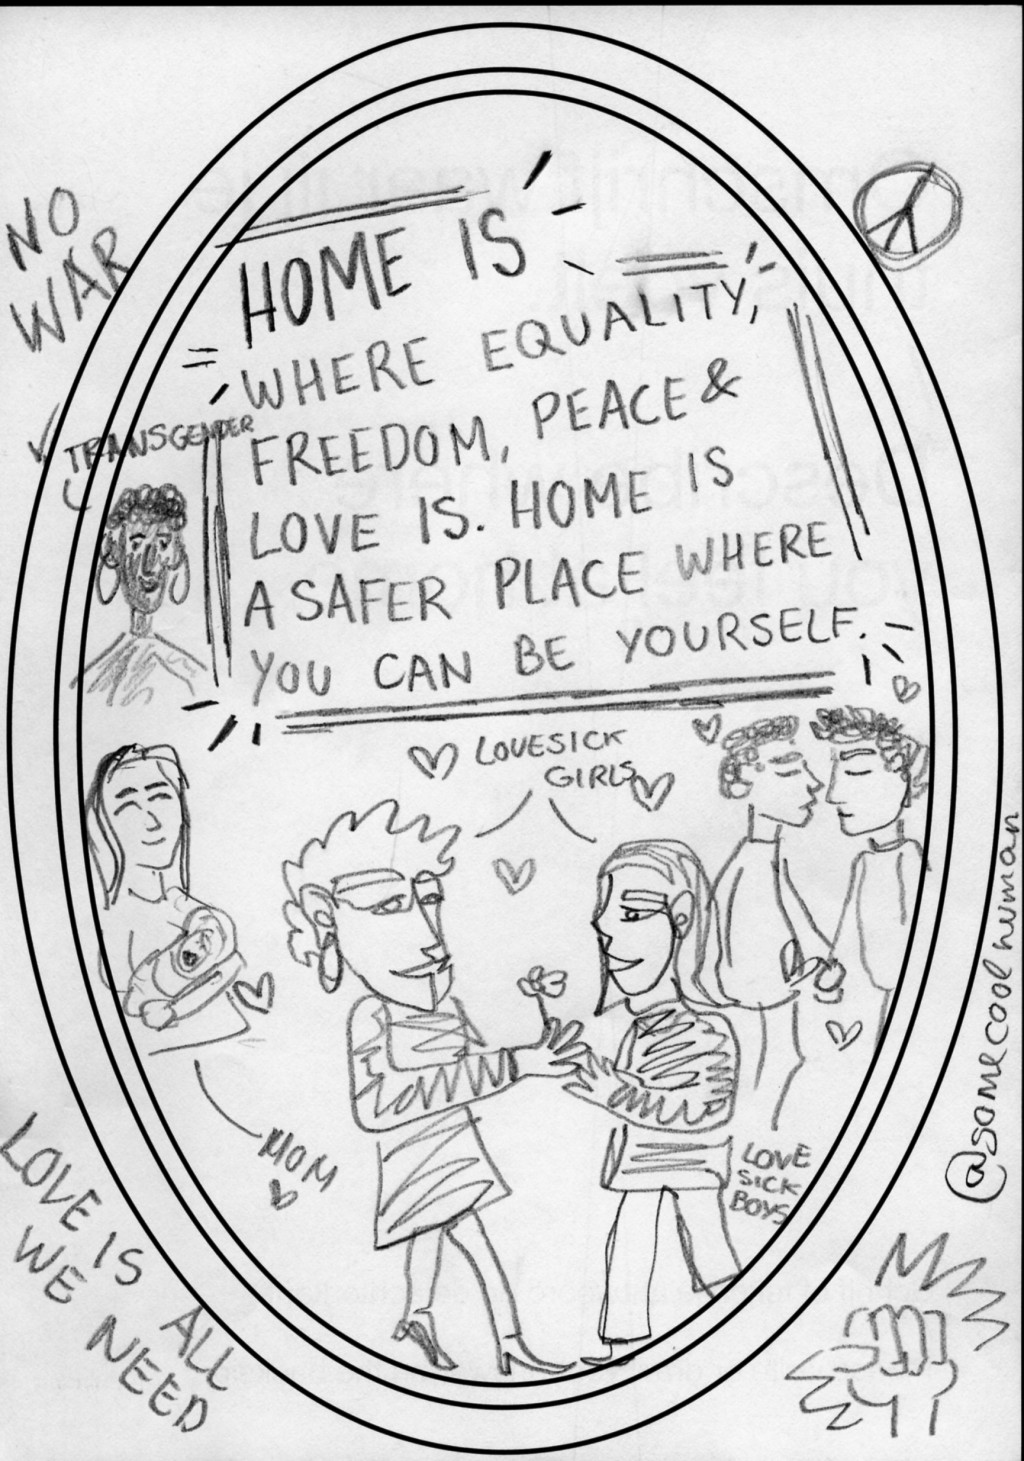 NO
WAR
HOME IS
WHERE EQUALITY,
FREEDOM, PEACE &
LOVE IS. HOME IS
A SAFER PLACE WHERE
YOU CAN BE YOURSELF.
TRANSGENDER
LOVESICK
GIRLS
MOM
LOVE
SICK
BOYS
@somecoolhuman
LOVE IS ALL
WE NEED